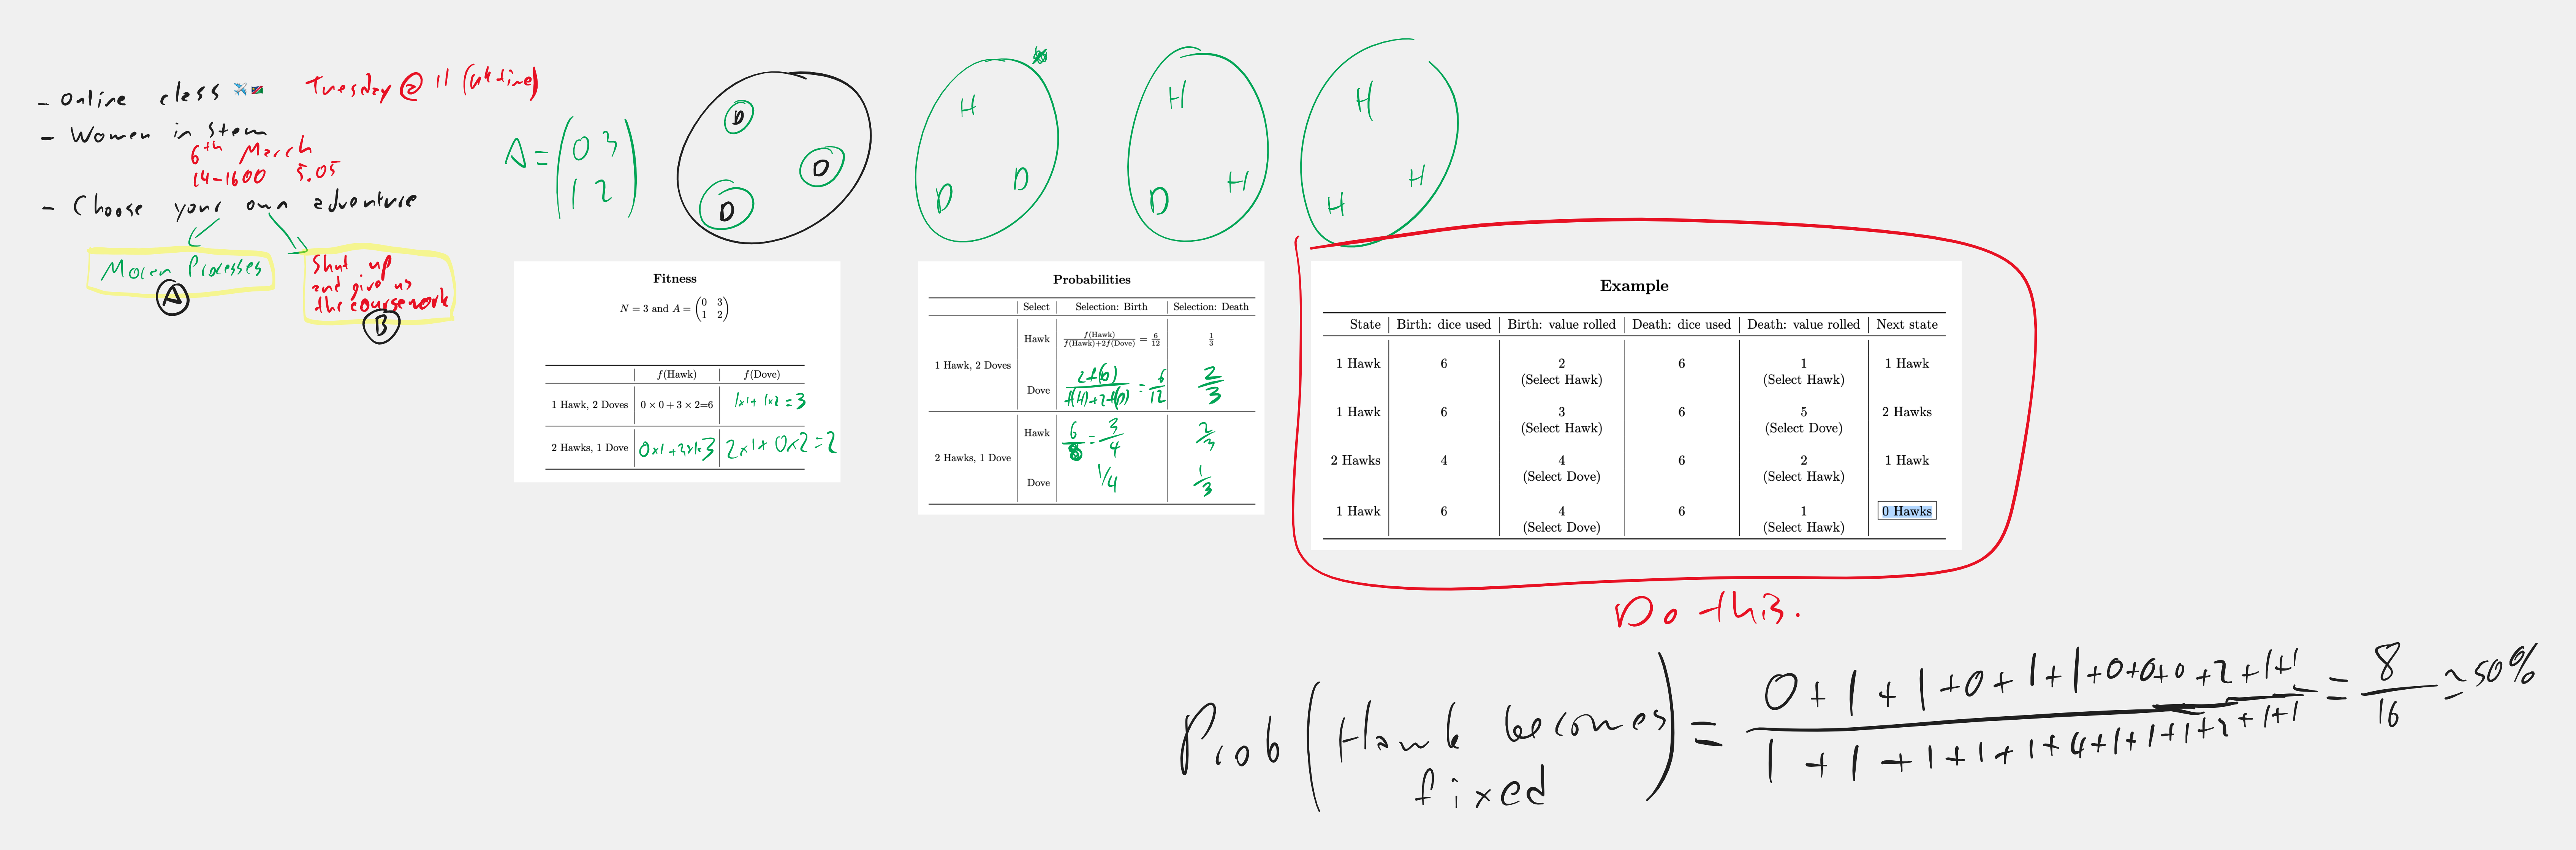 - Online class ✈️🇳🇦 Tuesday @ 11 (uk time)
- Women in stem
6th March
14-1600 5.05
- Choose your own adventure
Moran Processes
A
Shut up
and give us
the coursework
B
A = (0 3
1 2)
D
D
D
H
D D
H
D H
H
H H
Fitness
N = 3 and A = (0 3
1 2)
f(Hawk) f(Dove)
1 Hawk, 2 Doves 0 × 0 + 3 × 2=6 1x1+ 1x2 = 3
2 Hawks, 1 Dove 0x1+3x1=3 2x1+ 0x2 = 2
Probabilities
Select Selection: Birth Selection: Death
1 Hawk, 2 Doves
Hawk f(Hawk)/f(Hawk)+2f(Dove) = 6/12 1/3
Dove 2f(D)/f(H)+2f(D) = 6/12 2/3
2 Hawks, 1 Dove
Hawk 6/8 = 3/4 2/3
Dove 1/4 1/3
Example
State Birth: dice used Birth: value rolled Death: dice used Death: value rolled Next state
1 Hawk 6 2 6 1 1 Hawk
(Select Hawk) (Select Hawk)
1 Hawk 6 3 6 5 2 Hawks
(Select Hawk) (Select Dove)
2 Hawks 4 4 6 2 1 Hawk
(Select Dove) (Select Hawk)
1 Hawk 6 4 6 1 0 Hawks
(Select Dove) (Select Hawk)
Do this.
Prob (Hawk becomes
fixed) =
0+1+1+0+1+1+0+0+0+2+1+1
1+1+1+1+1+4+1+1+1+2+1+1
= 8/16 ≈ 50%